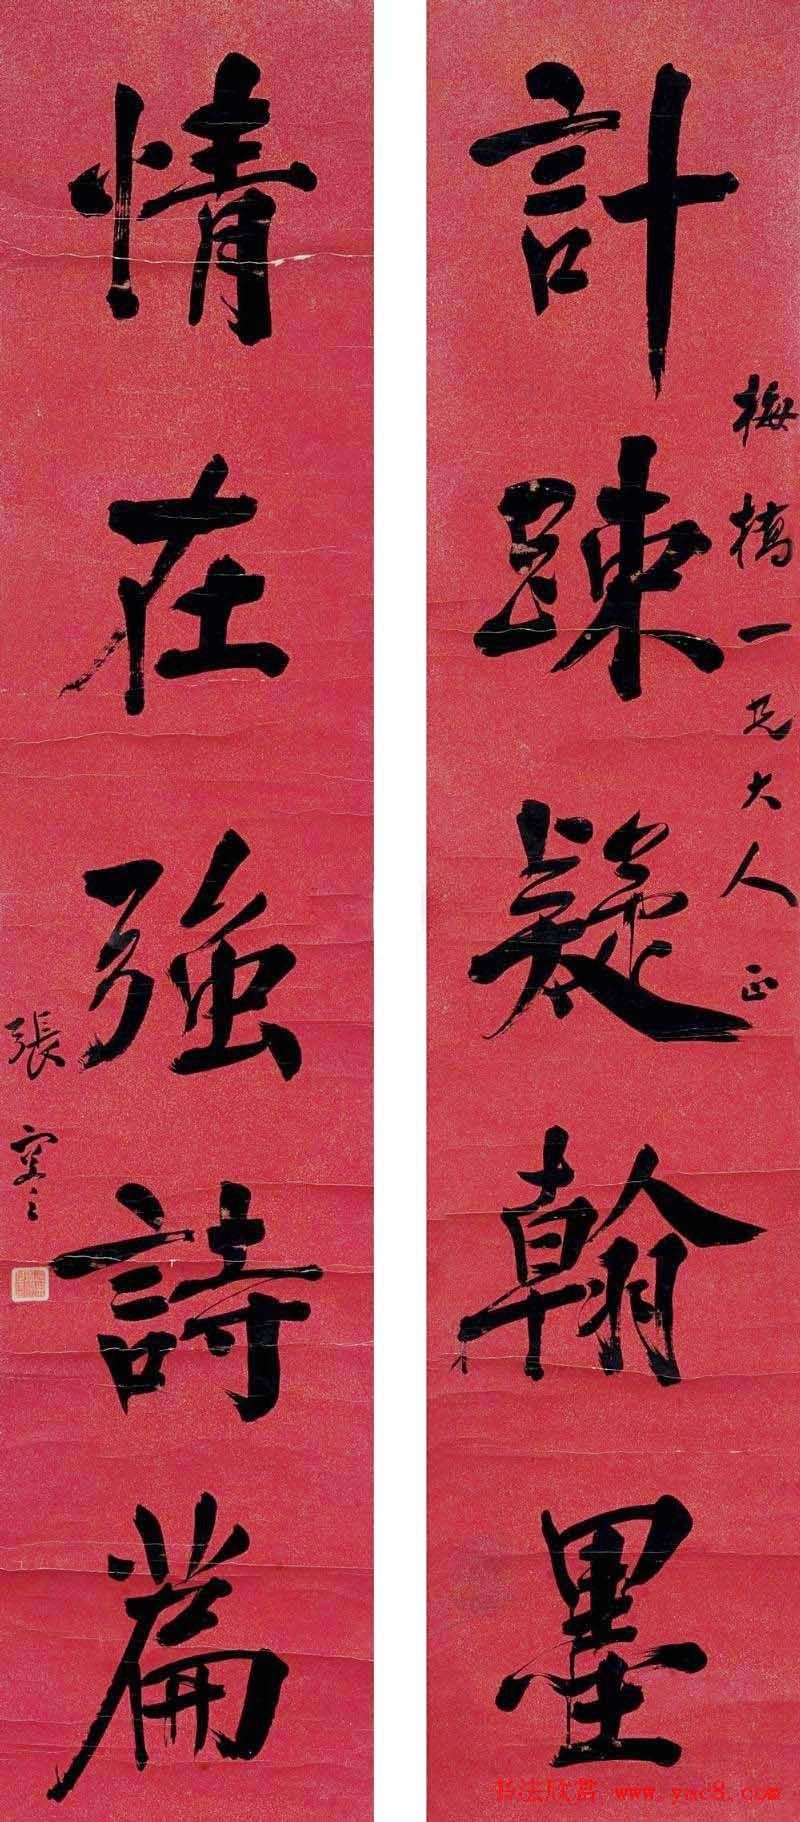 計踈凝翰墨
梅橋一兄大人正
情在強詩篇
張謇之
书法欣赏 www.yac8.com